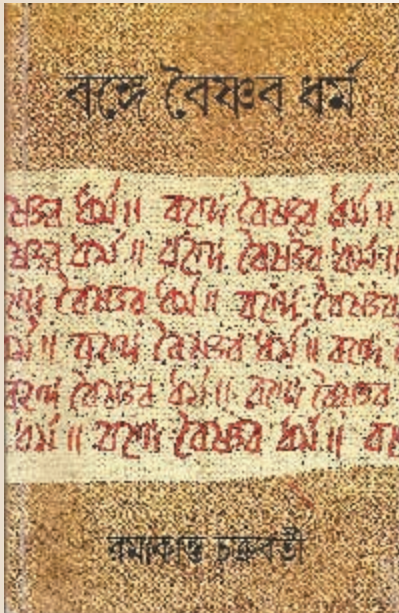 বঙ্গে বৈষ্ণব ধর্ম
ষ্ণব ধর্ম॥ বঙ্গে বৈষ্ণব ধর্ম॥
ষ্ণব ধর্ম॥ বঙ্গে বৈষ্ণব ধর্ম॥
বঙ্গে বৈষ্ণব ধর্ম॥ বঙ্গে বৈষ্ণব
ধর্ম॥ বঙ্গে বৈষ্ণব ধর্ম॥ বঙ্গে
বঙ্গে বৈষ্ণব ধর্ম॥ বঙ্গে বৈষ্ণব
ধর্ম॥ বঙ্গে বৈষ্ণব ধর্ম॥ বঙ্গে
রমাকান্ত চক্রবর্তী